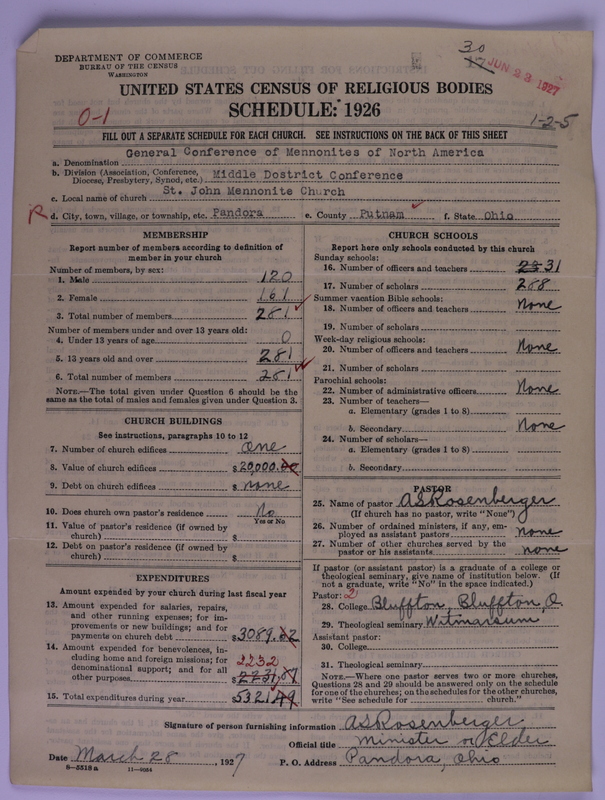 30
17
JUN 23 1927
DEPARTMENT OF COMMERCE
BUREAU OF THE CENSUS
WASHINGTON
UNITED STATES CENSUS OF RELIGIOUS BODIES
0-1
SCHEDULE: 1926
1-2-5
FILL OUT A SEPARATE SCHEDULE FOR EACH CHURCH. SEE INSTRUCTIONS ON THE BACK OF THIS SHEET
a. Denomination General Conference of Mennonites of North America
b. Division (Association, Conference, Diocese, Presbytery, Synod, etc.) Middle Dostrict Conference
c. Local name of church St. John Mennonite Church
R d. City, town, village, or township, etc. Pandora e. County Putnam f. State Ohio
MEMBERSHIP
Report number of members according to definition of
member in your church
Number of members, by sex:
1. Male 120
2. Female 161
3. Total number of members 281
Number of members under and over 13 years old:
4. Under 13 years of age 0
5. 13 years old and over 281
6. Total number of members 281
NOTE.—The total given under Question 6 should be the
same as the total of males and females given under Question 3.
CHURCH BUILDINGS
See instructions, paragraphs 10 to 12
7. Number of church edifices one
8. Value of church edifices $20,000.00
9. Debt on church edifices $ none
10. Does church own pastor's residence No
Yes or No
11. Value of pastor's residence (if owned by
church) $
12. Debt on pastor's residence (if owned by
church) $
EXPENDITURES
Amount expended by your church during last fiscal year
13. Amount expended for salaries, repairs,
and other running expenses; for im-
provements or new buildings; and for
payments on church debt $3089.82
14. Amount expended for benevolences, in-
cluding home and foreign missions; for
denominational support; and for all 2232
other purposes $
15. Total expenditures during year $5321
CHURCH SCHOOLS
Report here only schools conducted by this church
Sunday schools:
16. Number of officers and teachers 31
17. Number of scholars 288
Summer vacation Bible schools:
18. Number of officers and teachers None
19. Number of scholars
Week-day religious schools:
20. Number of officers and teachers None
21. Number of scholars
Parochial schools:
22. Number of administrative officers None
23. Number of teachers—
a. Elementary (grades 1 to 8)
b. Secondary None
24. Number of scholars—
a. Elementary (grades 1 to 8)
b. Secondary
PASTOR
25. Name of pastor A S Rosenberger
(If church has no pastor, write "None")
26. Number of ordained ministers, if any, em-
ployed as assistant pastors none
27. Number of other churches served by the
pastor or his assistants none
If pastor (or assistant pastor) is a graduate of a college or
theological seminary, give name of institution below. (If
not a graduate, write "No" in the space indicated.)
Pastor: 2
28. College Bluffton, Bluffton, O.
29. Theological seminary Witmarsum
Assistant pastor:
30. College
31. Theological seminary
NOTE.—Where one pastor serves two or more churches,
Questions 28 and 29 should be answered only on the schedule
for one of the churches; on the schedules for the other churches,
write "See schedule for church."
Signature of person furnishing information A S Rosenberger
Official title Minister or Elder
Date March 28, 1927 P. O. Address Pandora, Ohio
8—5518a 11—9064